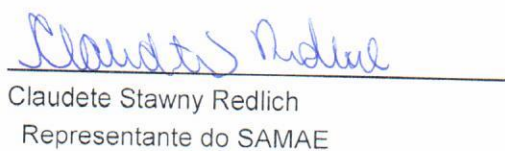 Claudete Redlich
Claudete Stawny Redlich
Representante do SAMAE